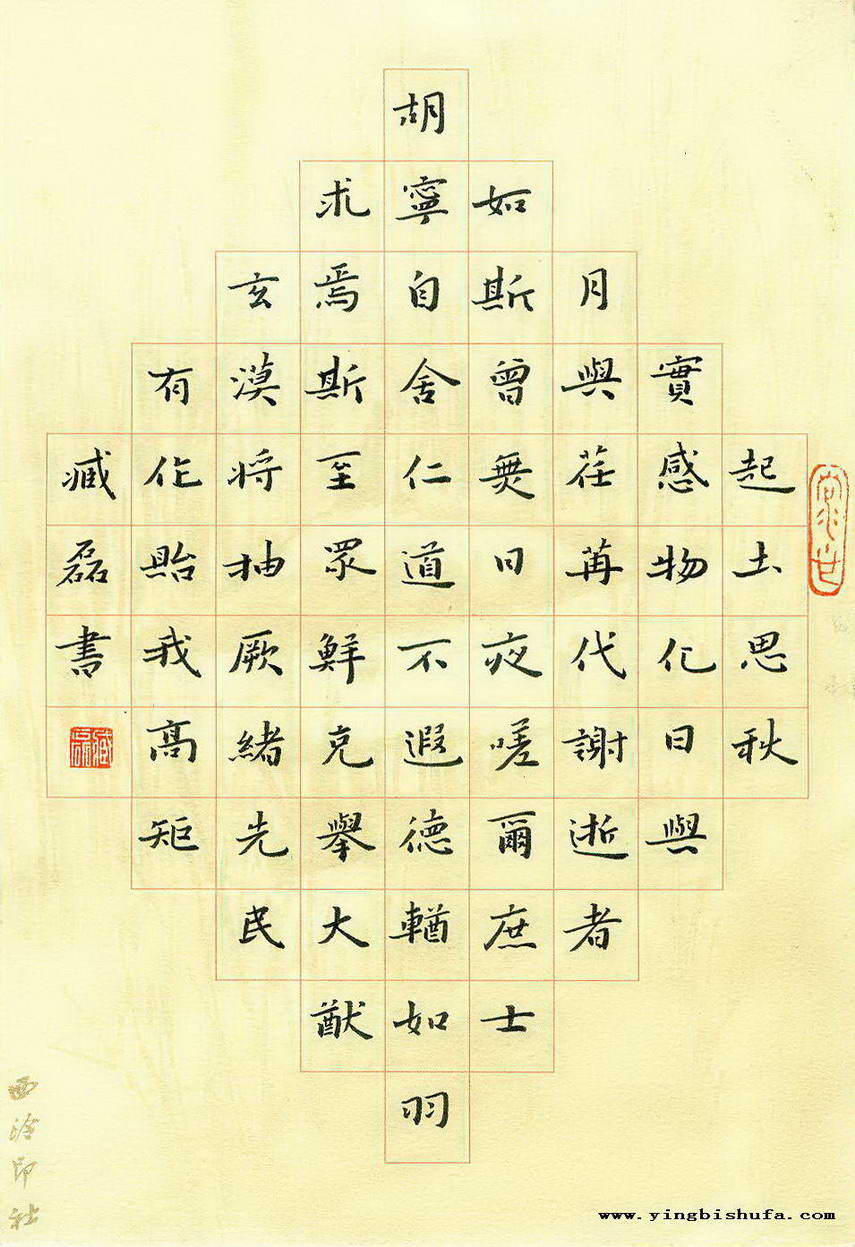 起土思秋
實感物化日與
月與荏苒代謝逝者
如斯曾無日夜嗟爾庶士
胡寧自舍仁道不遐德輶如羽
求焉斯至眾鮮克舉大猷
玄漠将抽厥緒先民
有作貽我高矩
臧磊書
臧磊
西泠印社
www.yingbishufa.com